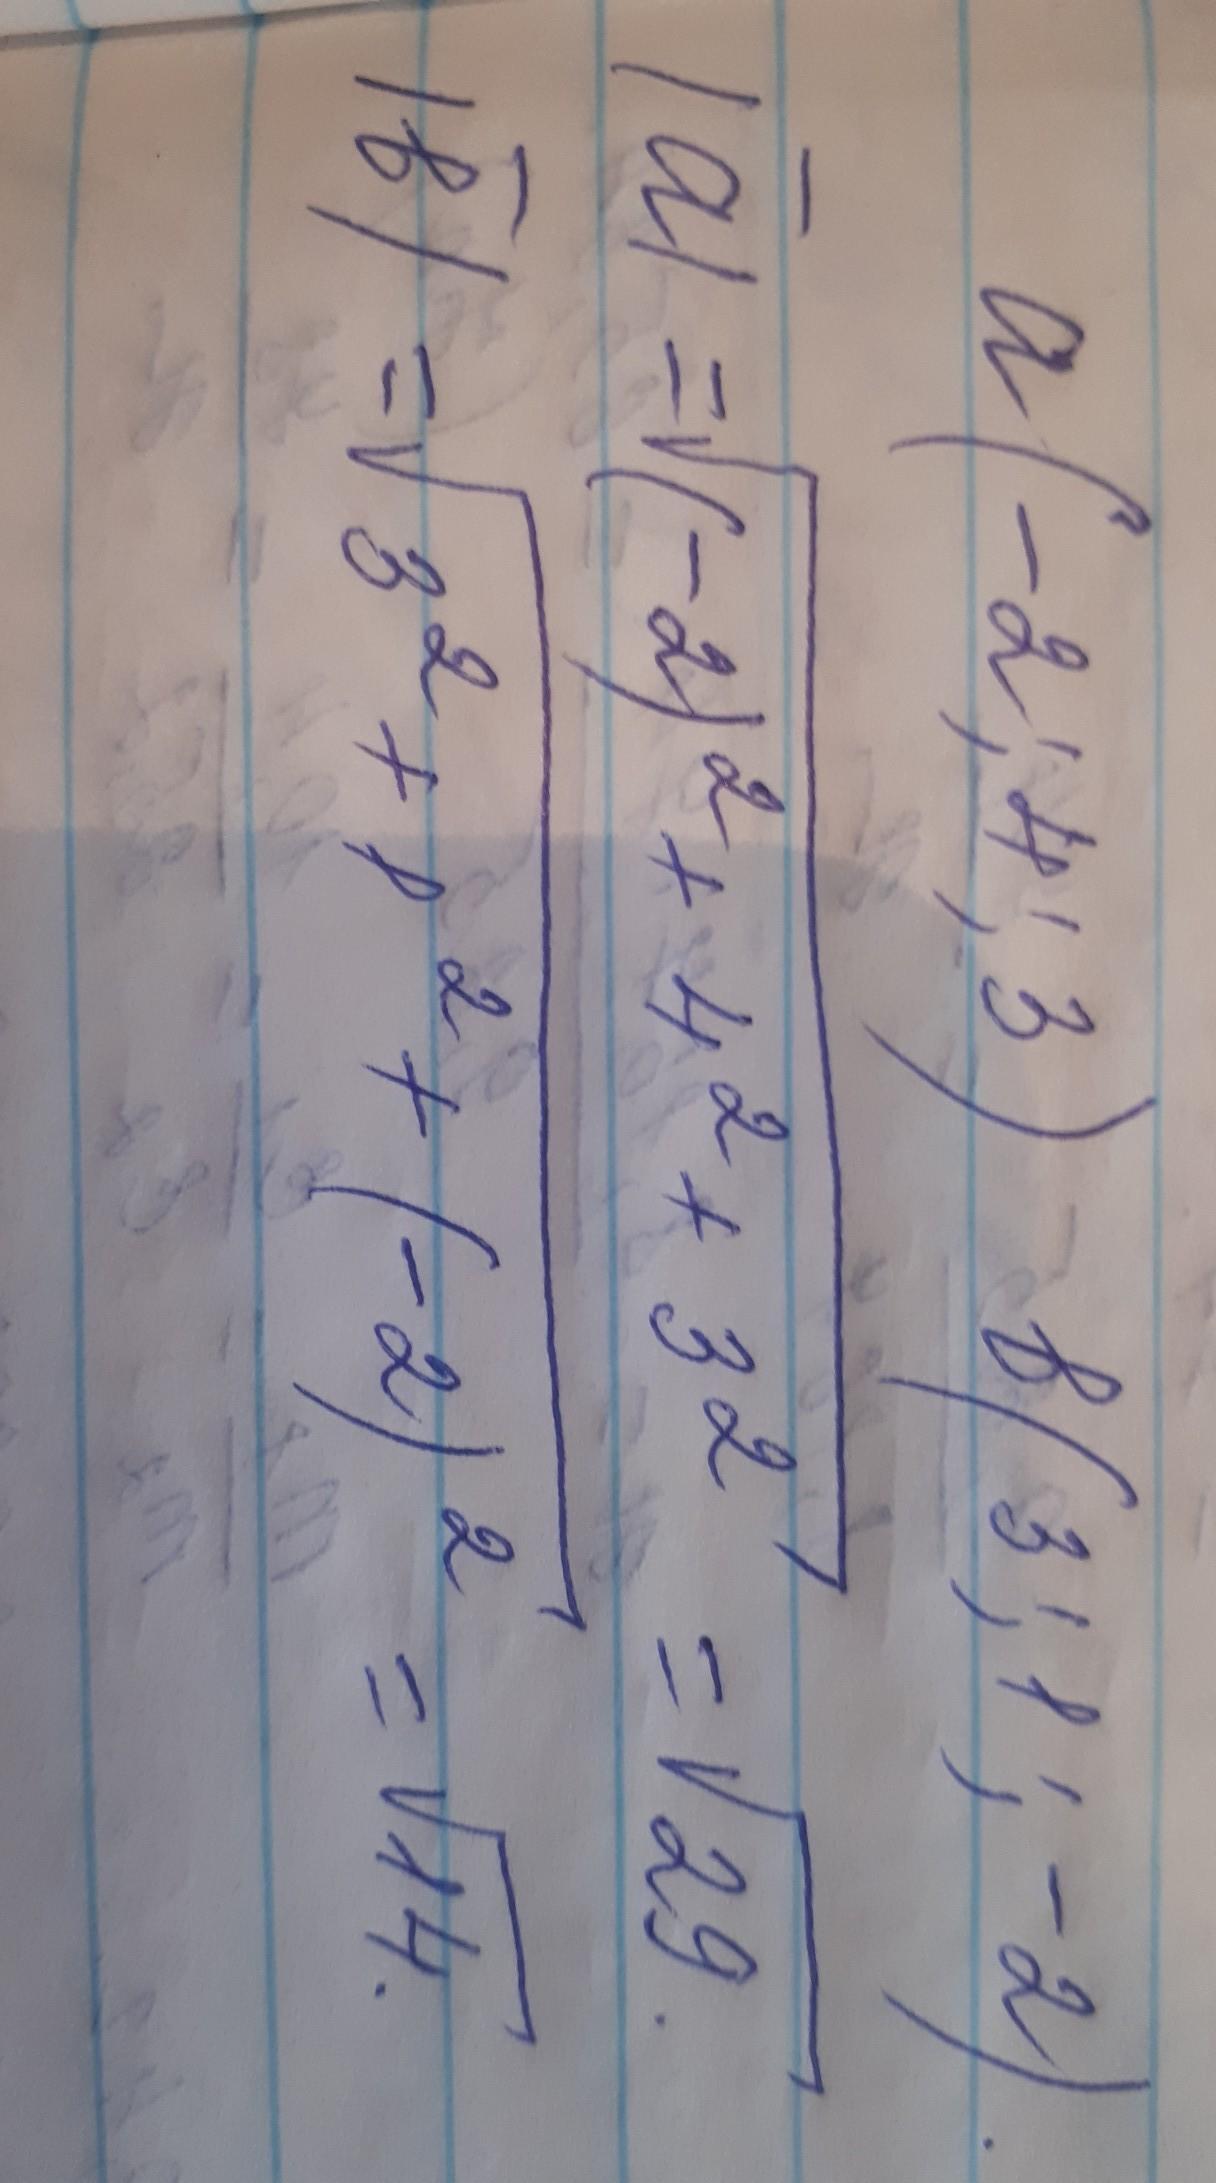 a(-2; 4; 3) b(3; 1; -2).
|a̅| = √((-2)² + 4² + 3²) = √29.
|b̅| = √(3² + 1² + (-2)²) = √14.